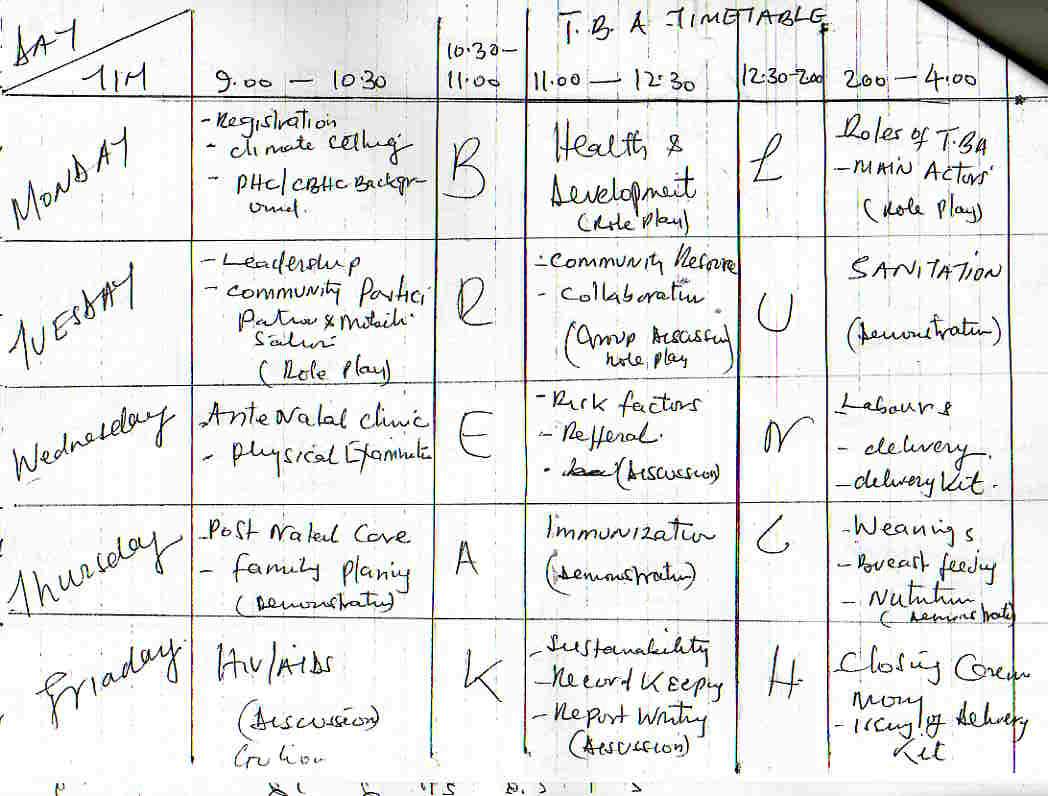 T.B.A TIMETABLE
DAY
TIM
9.00 — 10:30
10:30-
11:00
11.00 — 12:30
12:30-200
200 — 4.00
MONDAY
- Registration
- climate setting
- PHC/CBHC Backgr-
ound.
B
Health &
Development
(Role Play)
L
Roles of T.BA
- MAIN Actors
(Role Play)
TUESDAY
- Leadership
- community Partici
Pation & Mobili
sation
(Role Play)
R
- Community Resource
- Collaboration
(Group Discussion
Role play
U
SANITATION
(Demonstration)
Wednesday
- Ante Natal clinic
- Physical Examination
E
- Risk factors
- Refferal.
- (Discussion)
N
Labour &
- delivery
- delivery Kit.
Thursday
- Post Natal Care
- family Planing
(Demonstration)
A
Immunization
(Demonstration)
C
- Weaning &
- Breast feeding
- Nutrition
(Demonstration)
Friaday
HIV/AIDS
(Discussion)
K
- Sustanability
- Record Keeping
- Report Writing
(Discussion)
H
Closing Cerem
mony
- Issuing of Delivery
Kit